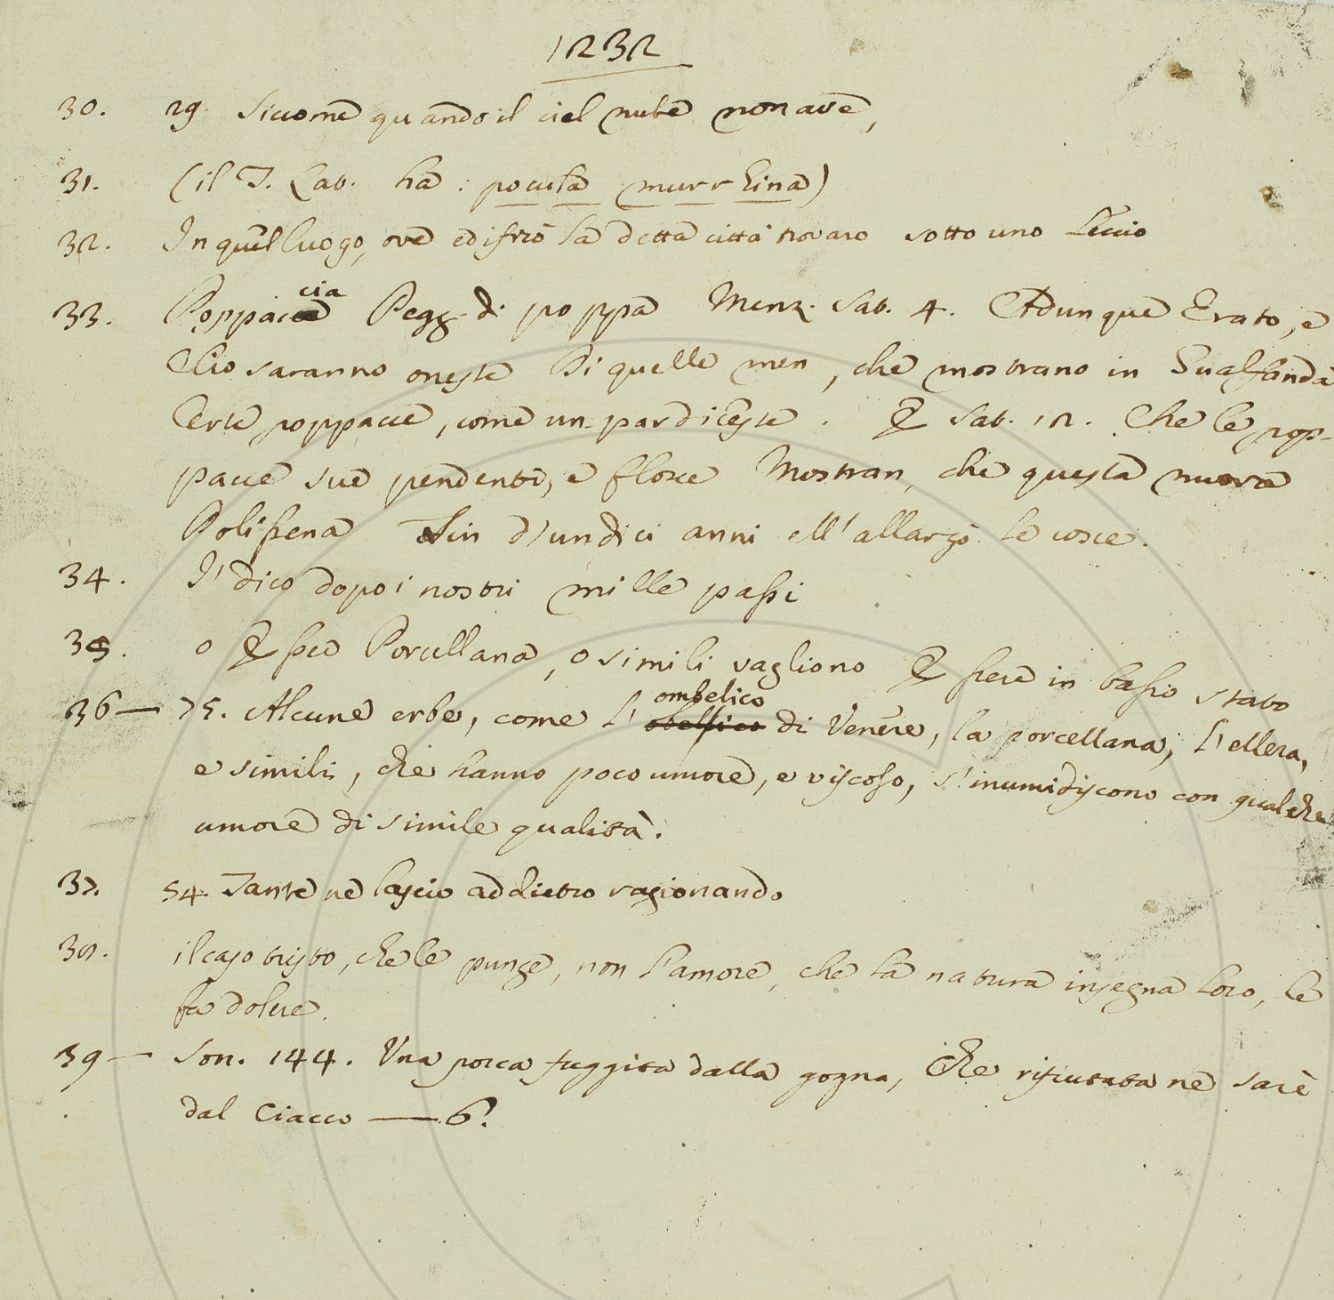 1232
30. 29. Siccome quando il ciel nube non ave,
31. (il T. Lab. ha: pocula murrhina)
32. In quel luogo, ove edificò la detta città trovaro sotto uno Leccio
33. Poppaccia Pegg. di poppa Menz. Sat. 4. Adunque Erato, e
Clio saranno oneste Di quelle men, che mostrano in Gualfonda
Certe poppacce, come un pardiceste. E Sat. 12. Che le pop-
pacce sue pendenti, e flosce Mostran, che questa nuova
Polissena Fin d'undici anni ell'allargò le cosce.
34. I' dico dopo i nostri mille passi
35. o Porcellana, o simili vagliono in basso stato
36 — 75. Alcune erbe, come l' ombelico di Venere, la porcellana, l'ellera,
e simili, che hanno poco umore, e viscoso, s'inumidiscono con qualche
umore di simile qualità.
37. 54. Tante ne lascio addietro ragionando
38. il caso tristo, che le punge, non l'amore, che la natura insegna loro, le
fa dolere.
39 — Son. 144. Una porca fuggita dalla gogna, Che rifiutata ne sarè
dal Ciacco — 6?